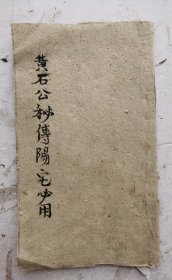 黄石公秘傳陽宅必用